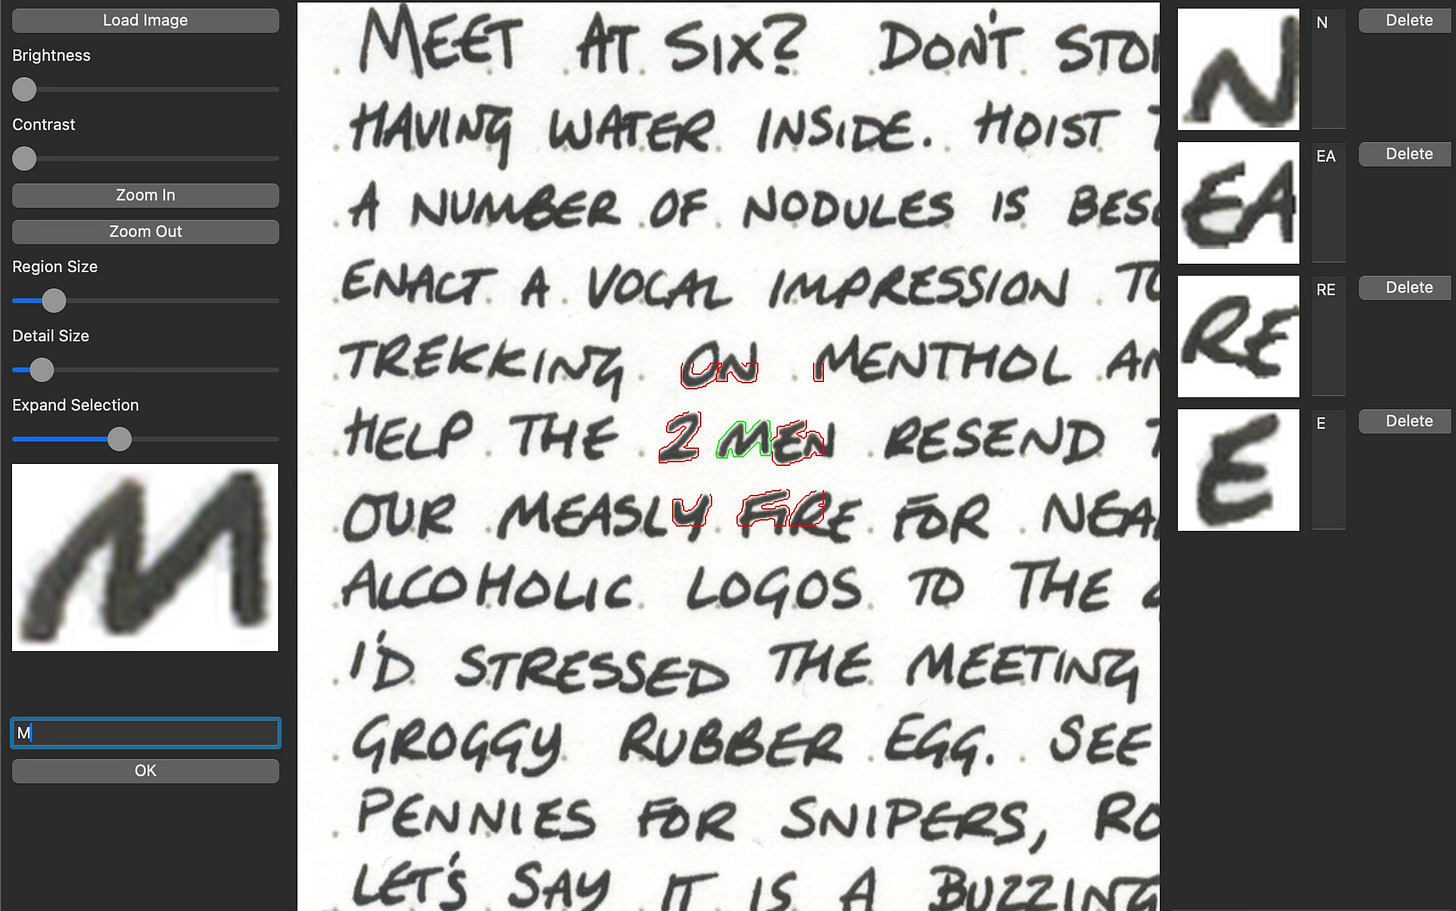 Load Image
Brightness
Contrast
Zoom In
Zoom Out
Region Size
Detail Size
Expand Selection
M
M
OK
MEET AT SIX? DON'T STO
HAVING WATER INSIDE. HOIST
A NUMBER OF NODULES IS BES
ENACT A VOCAL IMPRESSION TO
TREKKING ON MENTHOL AN
HELP THE 2 MEN RESEND
OUR MEASLY FIRE FOR NEA
ALCOHOLIC LOGOS TO THE
I'D STRESSED THE MEETING
GROGGY RUBBER EGG. SEE
PENNIES FOR SNIPERS, RO
LET'S SAY IT IS A BUZZING
N N Delete
EA EA Delete
RE RE Delete
E E Delete